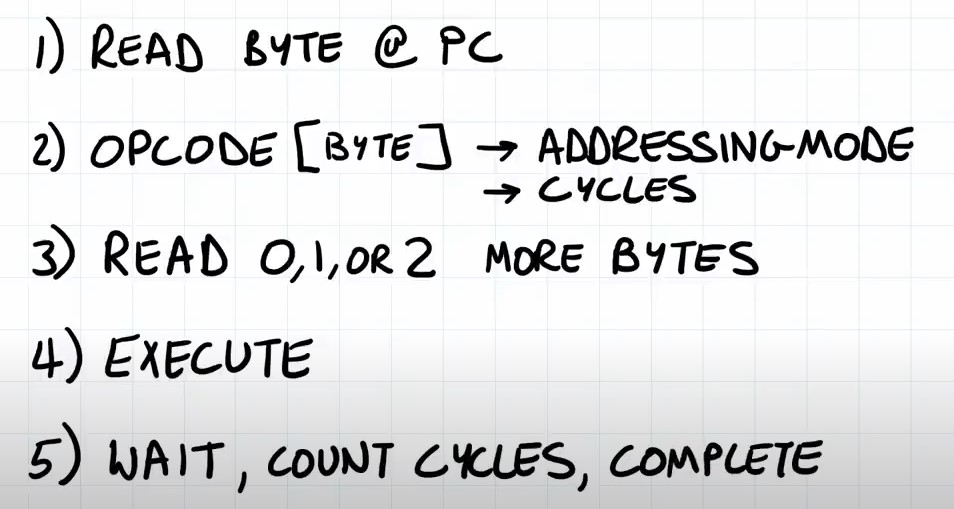 1) READ BYTE @ PC
2) OPCODE [BYTE] → ADDRESSING-MODE
→ CYCLES
3) READ 0, 1, OR 2 MORE BYTES
4) EXECUTE
5) WAIT, COUNT CYCLES, COMPLETE